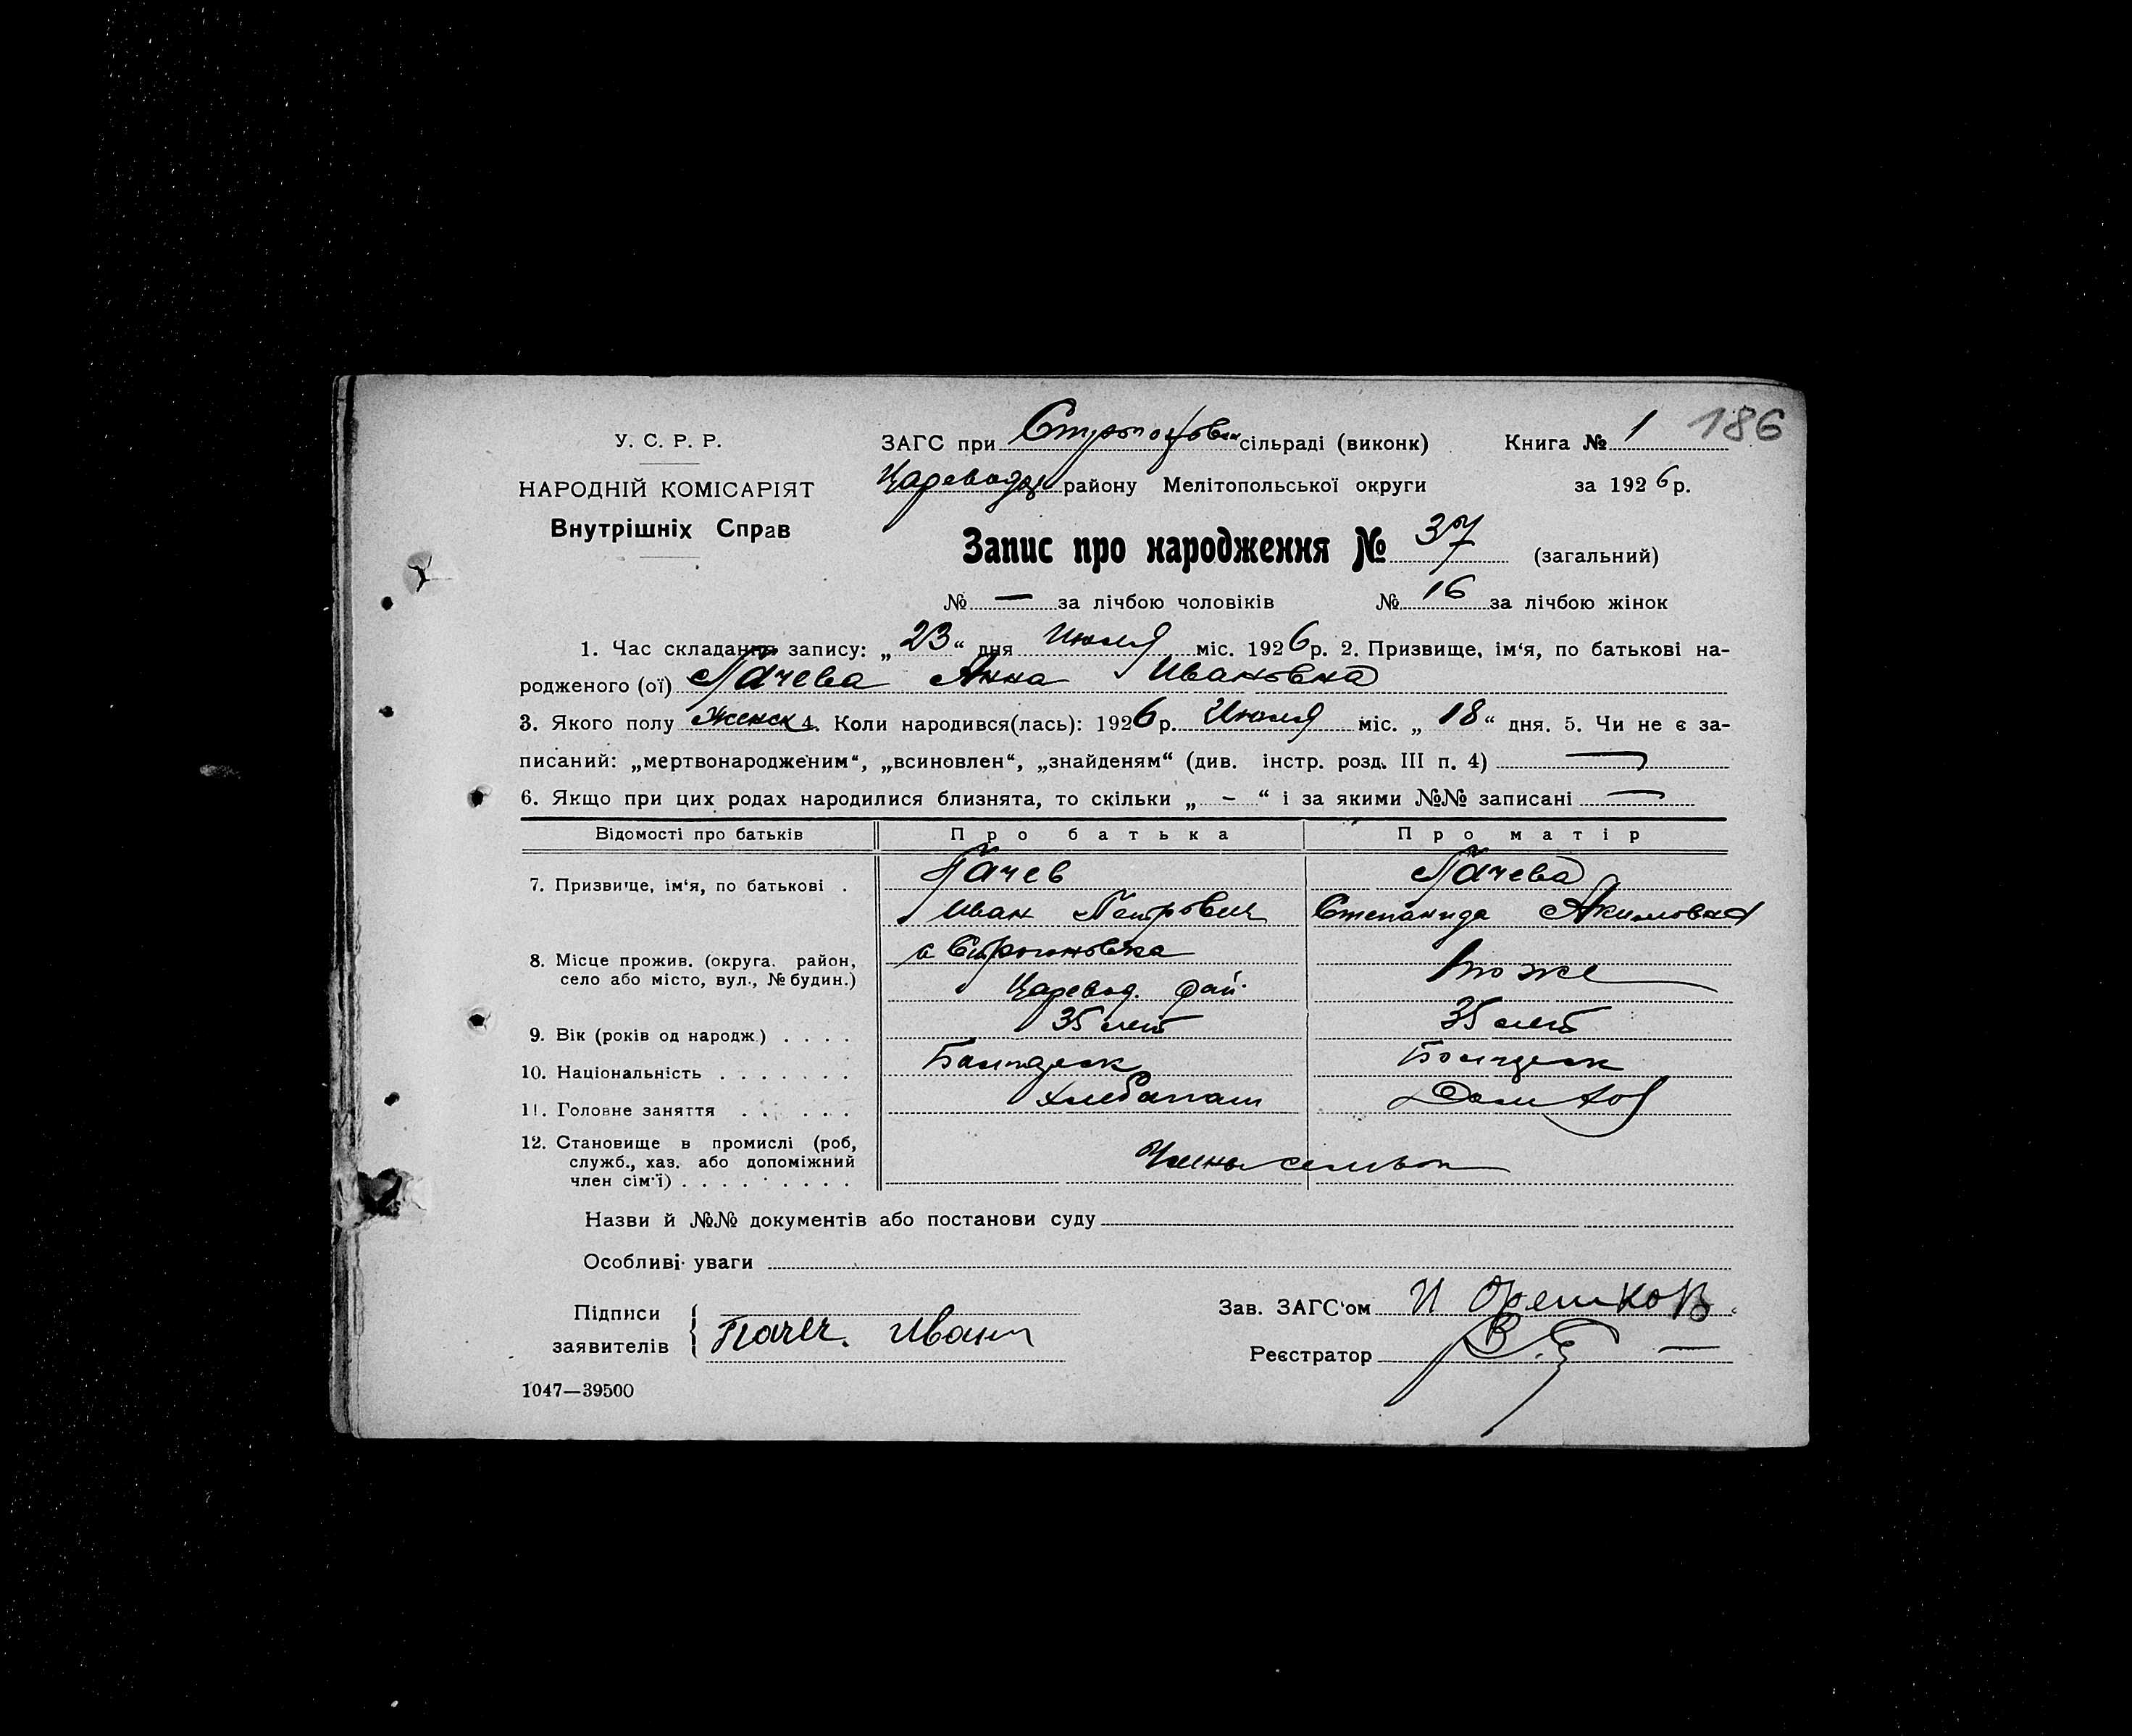 186
У. С. Р. Р.
НАРОДНІЙ КОМІСАРІЯТ
Внутрішніх Справ
ЗАГС при Строгоновск сільраді (виконк) Книга № 1
Цареводар району Мелітопольської округи за 1926 р.
Запис про народження № 37 (загальний)
№ — за лічбою чоловіків № 16 за лічбою жінок
1. Час складання запису: „23“ дня Июля міс. 1926 р. 2. Призвище, ім‘я, по батькові на-
родженого (ої) Пачева Анна Ивановна
3. Якого полу Женск 4. Коли народився(лась): 1926 р. Июля міс. „18“ дня. 5. Чи не є за-
писаний: „мертвонародженим“, „всиновлен“, „знайденям“ (див. інстр. розд. III п. 4) —
6. Якщо при цих родах народилися близнята, то скільки „ – “ і за якими №№ записані —
Відомості про батьків Про батька Про матір
7. Призвище, ім‘я, по батькові . Пачев Пачева
Иван Петрович Степанида Акимовна
8. Місце прожив. (округа. район, село або місто, вул., № будин.) с Строгоновка тоже
Царевод. рай.
9. Вік (років од народж.) . . . . 35 лет 35 лет
10. Національність . . . . . . .
11. Головне заняття . . . . . . Хлебопаш
12. Становище в промислі (роб, служб., хаз. або допоміжний член сім‘ї) . . . . . . . . .
Назви й №№ документів або постанови суду
Особливі уваги
Підписи заявителів Пачев. Иван
Зав. ЗАГС‘ом И Орешков
Реєстратор
1047—39500